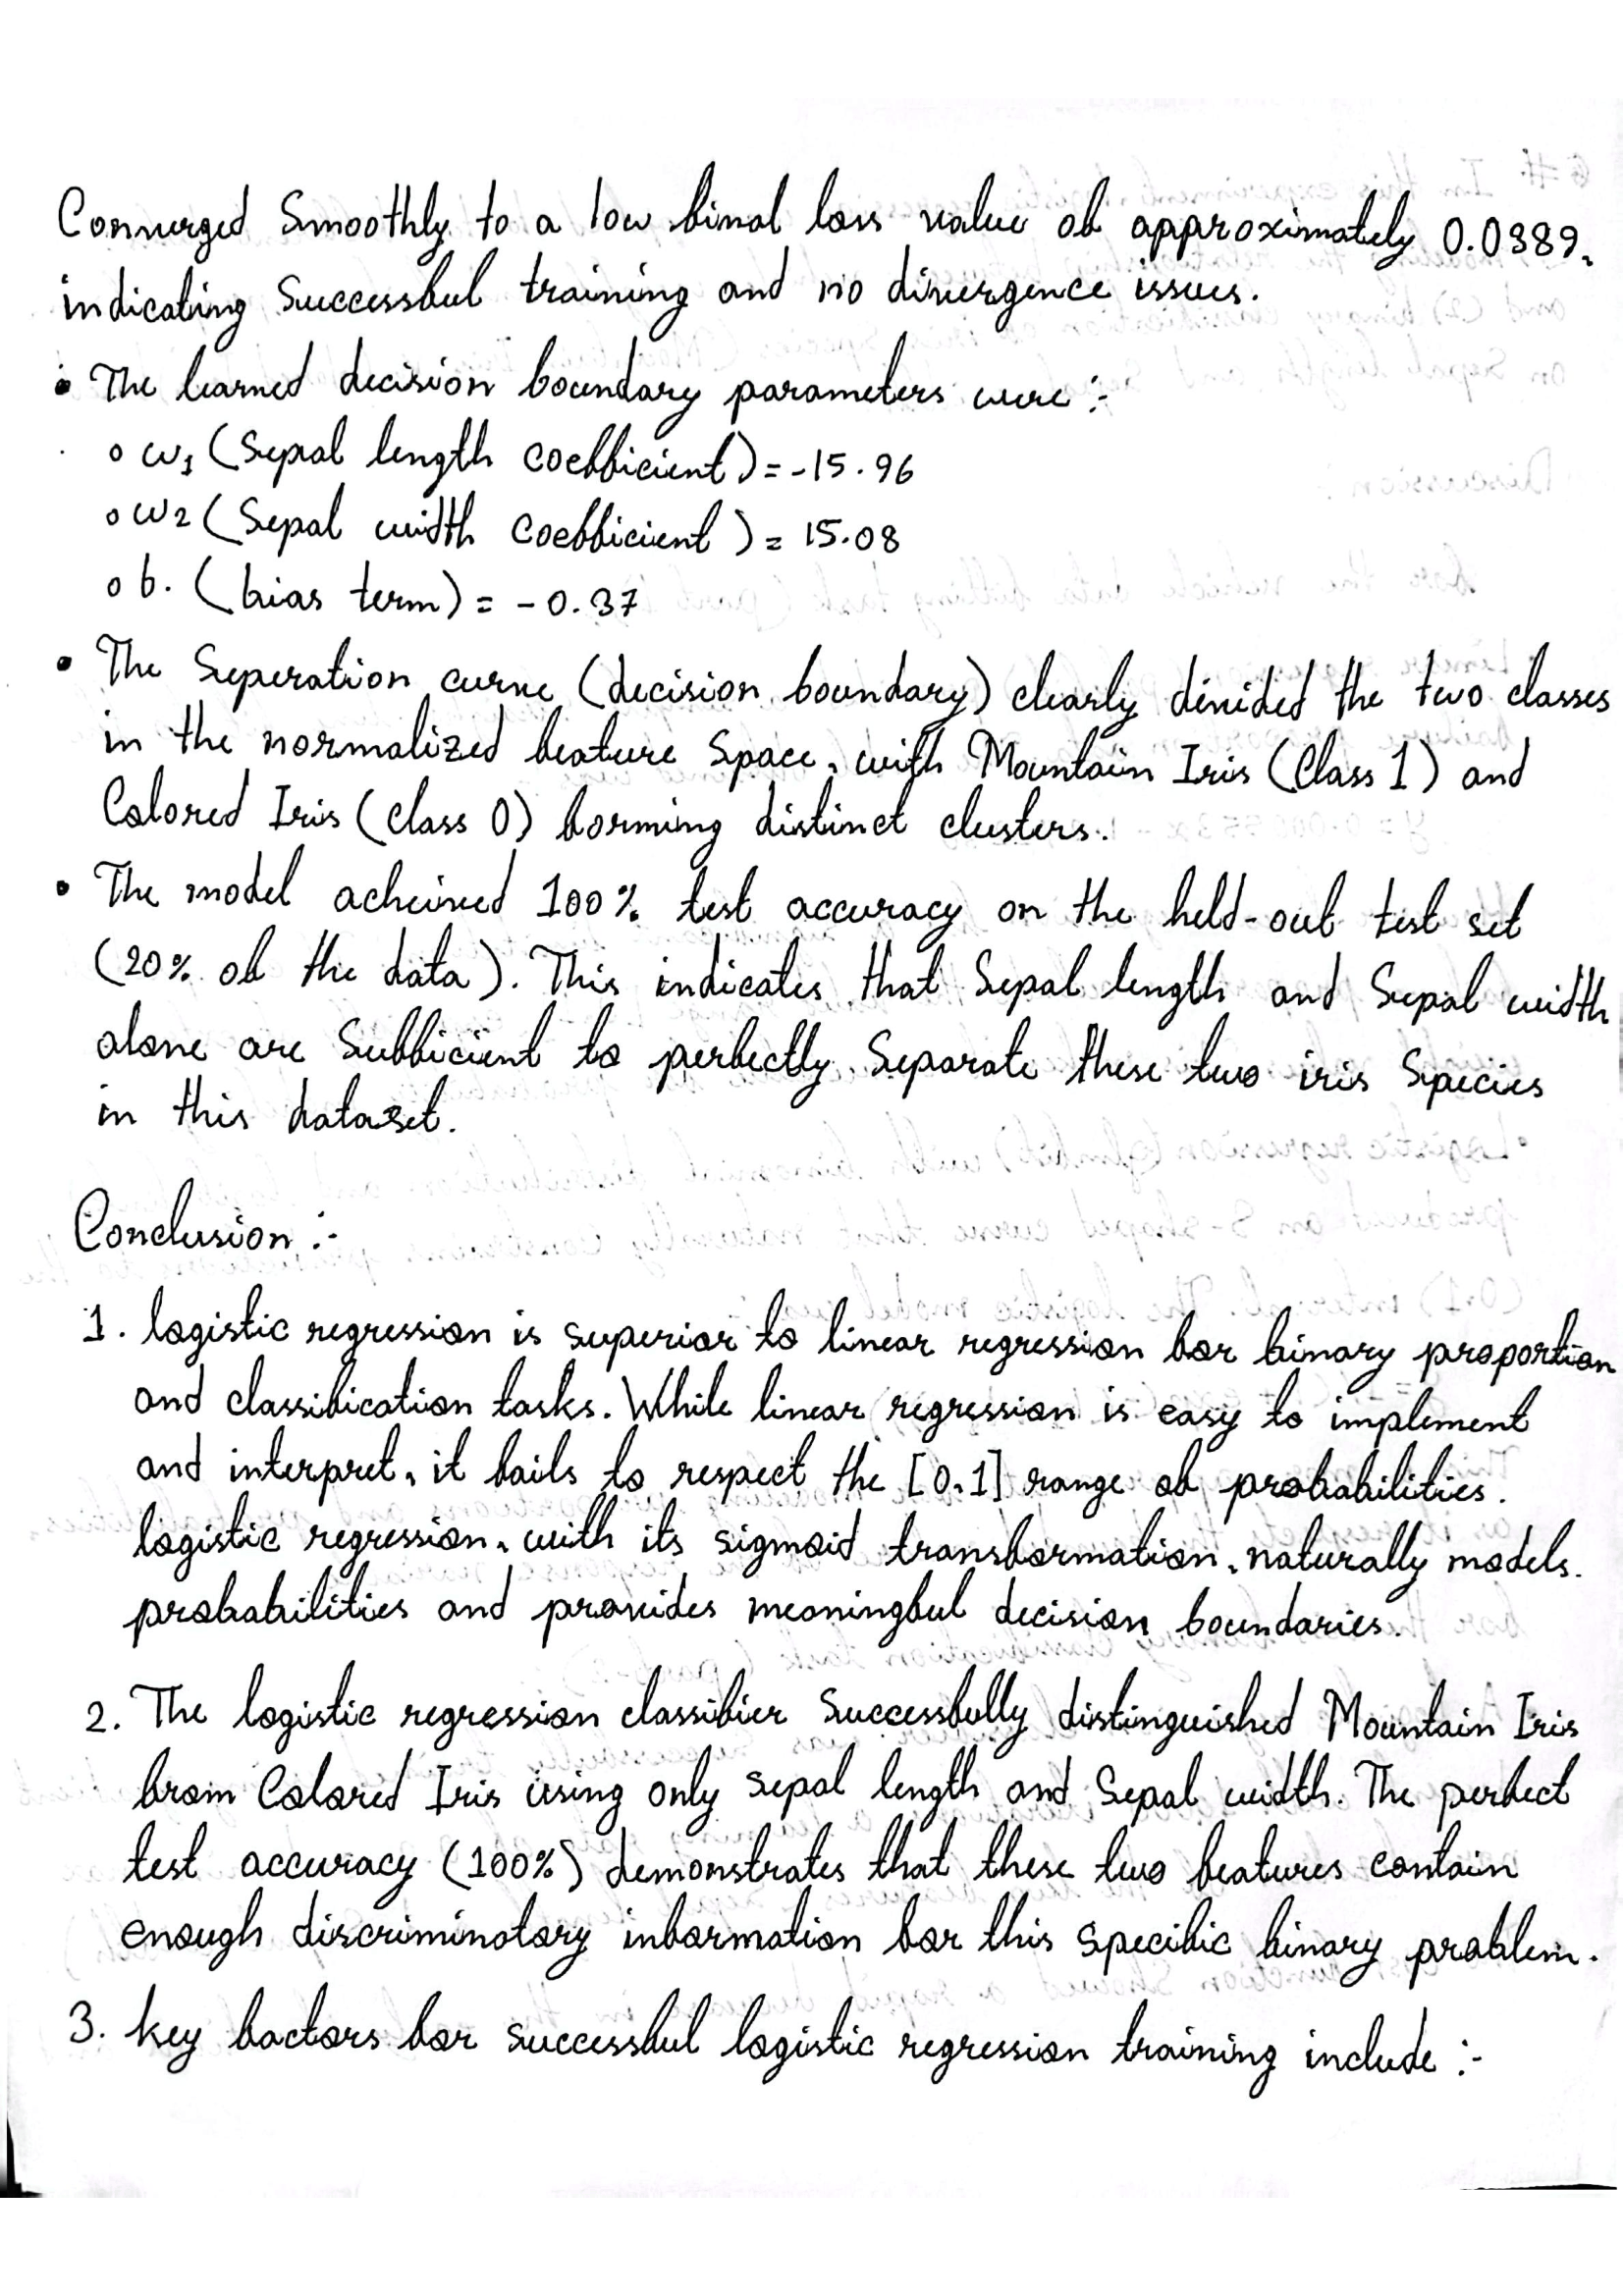 Converged Smoothly to a low final loss value of approximately 0.0389,
indicating Successful training and no divergence issues.
• The learned decision boundary parameters were :-
o w1 (Sepal length coefficient) = -15.96
o w2 (Sepal width coefficient) = 15.08
o b. (bias term) = -0.37
• The Seperation curve (decision boundary) clearly divided the two classes
in the normalized feature Space, with Mountain Iris (Class 1) and
Colored Iris (class 0) forming distinct clusters.
• The model acheived 100% test accuracy on the held-out test set
(20% of the data). This indicates that Sepal length and Sepal width
alone are Sufficient to perfectly Separate these two iris Species
in this dataset.
Conclusion :-
1. logistic regression is superior to linear regression for binary proportion
and classification tasks. While linear regression is easy to implement
and interpret, it fails to respect the [0,1] range of probabilities.
logistic regression, with its sigmoid transformation, naturally models.
probabilities and provides meaningful decision boundaries.
2. The logistic regression classifier Successfully distinguished Mountain Iris
from Colored Iris using only sepal length and Sepal width. The perfect
test accuracy (100%) demonstrates that these two features contain
enough discriminatory information for this specific binary problem.
3. key factors for successful logistic regression training include :-